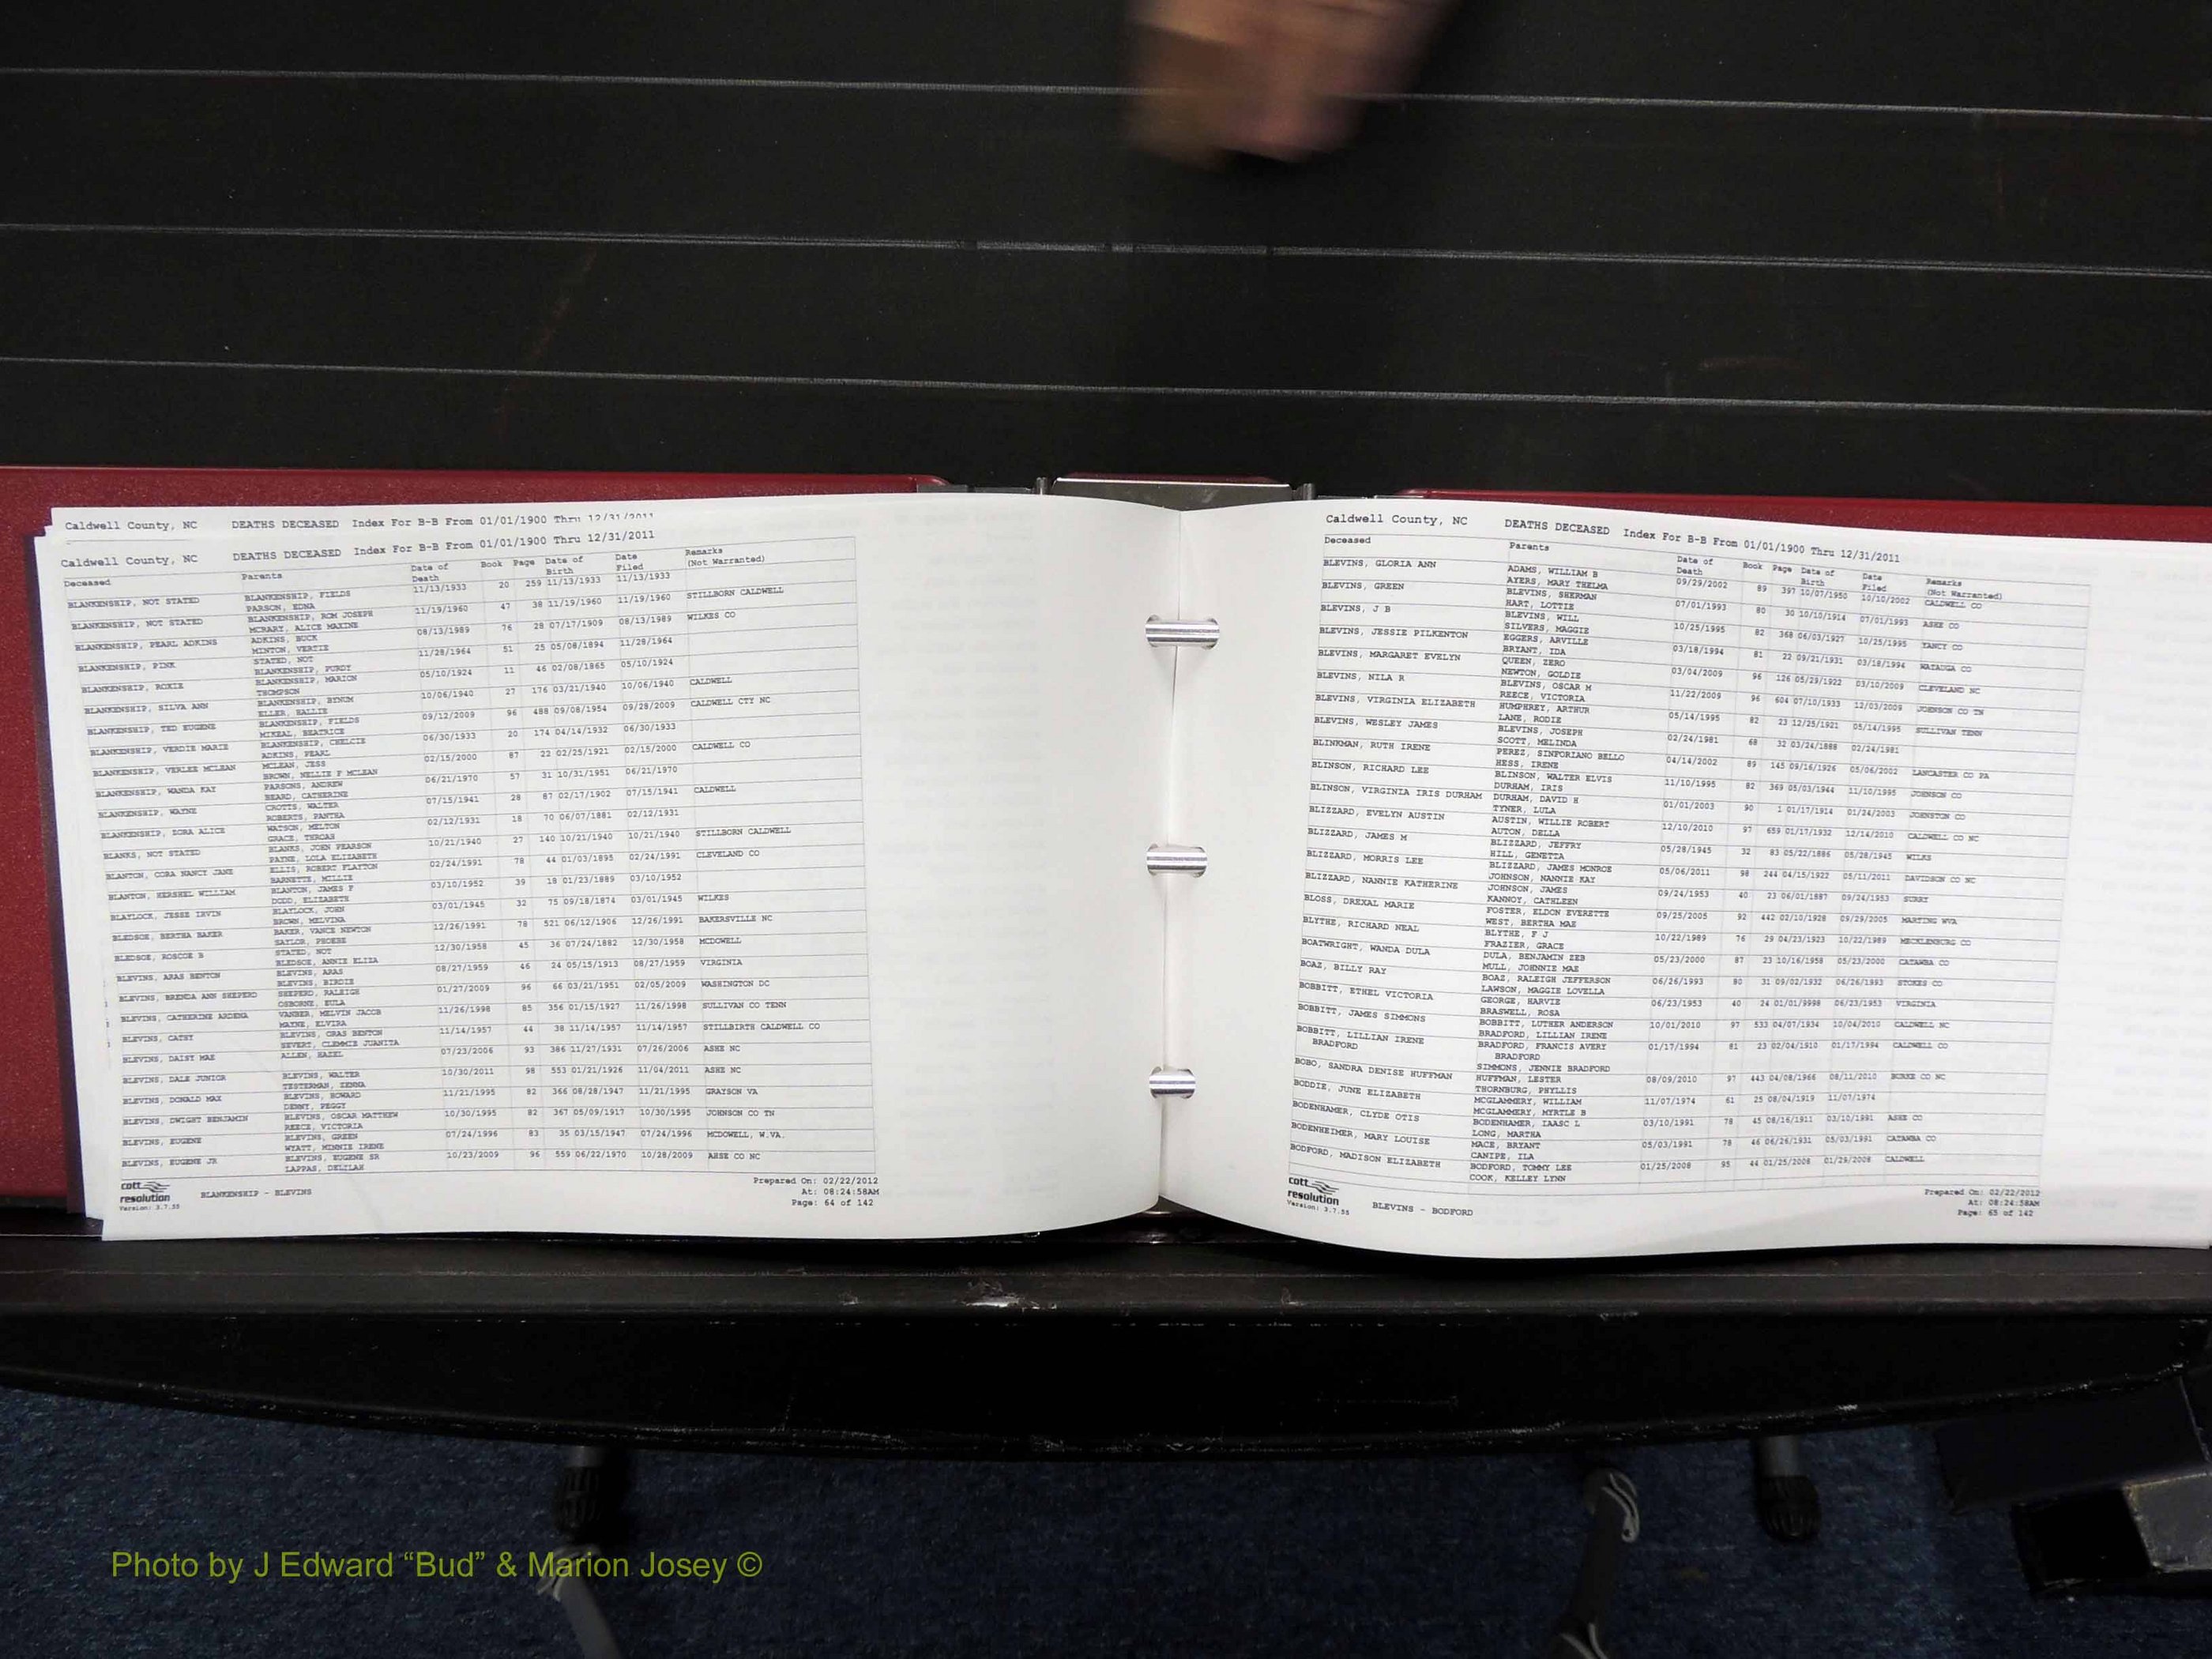 Caldwell County, NC DEATHS DECEASED Index For B-B From 01/01/1900 Thru 12/31/2011
Caldwell County, NC DEATHS DECEASED Index For B-B From 01/01/1900 Thru 12/31/2011
Deceased Parents Date of Death Book Page Date of Birth Date Filed Remarks (Not Warranted)
BLANKENSHIP, NOT STATED BLANKENSHIP, FIELDS 11/13/1933 20 259 11/13/1933 11/13/1933
PARSON, EDNA
BLANKENSHIP, NOT STATED BLANKENSHIP, ROM JOSEPH 11/19/1960 47 38 11/19/1960 11/19/1960 STILLBORN CALDWELL
MCRARY, ALICE MAXINE
BLANKENSHIP, PEARL ADKINS ADKINS, BUCK 08/13/1989 76 28 07/17/1909 08/13/1989 WILKES CO
MINTON, VERTIE
BLANKENSHIP, PINK STATED, NOT 11/28/1964 51 25 05/08/1894 11/28/1964
BLANKENSHIP, PURDY
BLANKENSHIP, ROXIE BLANKENSHIP, MARION 05/10/1924 11 46 02/08/1865 05/10/1924
THOMPSON
BLANKENSHIP, SILVA ANN BLANKENSHIP, BYNUM 10/06/1940 27 176 03/21/1940 10/06/1940 CALDWELL
ELLER, SALLIE
BLANKENSHIP, TED EUGENE BLANKENSHIP, FIELDS 09/12/2009 96 488 09/08/1954 09/28/2009 CALDWELL CTY NC
MIKEAL, BEATRICE
BLANKENSHIP, VERDIE MARIE BLANKENSHIP, CHELCIE 06/30/1933 20 174 04/14/1932 06/30/1933
ADKINS, PEARL
BLANKENSHIP, VERLEE MCLEAN MCLEAN, JESS 02/15/2000 87 22 02/25/1921 02/15/2000 CALDWELL CO
BROWN, NELLIE F MCLEAN
BLANKENSHIP, WANDA KAY PARSONS, ANDREW 06/21/1970 57 31 10/31/1951 06/21/1970
BEARD, CATHERINE
BLANKENSHIP, WAYNE CROTTS, WALTER 07/15/1941 28 87 02/17/1902 07/15/1941 CALDWELL
ROBERTS, PANTHA
BLANKENSHIP, ZORA ALICE WATSON, MELTON 02/12/1931 18 70 06/07/1881 02/12/1931
GRACE, THROAS
BLANKS, NOT STATED BLANKS, JOHN PEARSON 10/21/1940 27 140 10/21/1940 10/21/1940 STILLBORN CALDWELL
PAYNE, LOLA ELIZABETH
BLANTON, CORA NANCY JANE ELLIS, ROBERT FLAYTON 02/24/1991 78 44 01/03/1895 02/24/1991 CLEVELAND CO
BARNETTE, MILLIE
BLANTON, HERSHEL WILLIAM BLANTON, JAMES F 03/10/1952 39 18 01/23/1889 03/10/1952
DODD, ELIZABETH
BLAYLOCK, JESSE IRVIN BLAYLOCK, JOHN 03/01/1945 32 75 09/18/1874 03/01/1945 WILKES
BROWN, MELVINA
BLEDSOE, BERTHA BAKER BAKER, VANCE NEWTON 12/26/1991 78 521 06/12/1906 12/26/1991 BAKERSVILLE NC
SAYLOR, PHOEBE
BLEDSOE, ROSCOE B STATED, NOT 12/30/1958 45 36 07/24/1882 12/30/1958 MCDOWELL
BLEDSOE, ANNIE ELIZA
BLEVINS, ARAS BENTON BLEVINS, ARAS 08/27/1959 46 24 05/15/1913 08/27/1959 VIRGINIA
BLEVINS, BIRDIE
BLEVINS, BRENDA ANN SHEPERD SHEPERD, RALEIGH 01/27/2009 96 66 03/21/1951 02/05/2009 WASHINGTON DC
OSBORNE, EULA
BLEVINS, CATHERINE ARDENA VANBER, MELVIN JACOB 11/26/1998 85 356 01/15/1927 11/26/1998 SULLIVAN CO TENN
MAYNE, ELVIRA
BLEVINS, CATHY BLEVINS, ORAS BENTON 11/14/1957 44 38 11/14/1957 11/14/1957 STILLBIRTH CALDWELL CO
SEVERT, CLEMMIE JUANITA
BLEVINS, DAISY MAE ALLEN, HAZEL 07/23/2006 93 386 11/27/1931 07/26/2006 ASHE NC
BLEVINS, DALE JUNIOR BLEVINS, WALTER 10/30/2011 98 553 01/21/1926 11/04/2011 ASHE NC
TESTERMAN, ZENNA
BLEVINS, DONALD MAX BLEVINS, HOWARD 11/21/1995 82 366 08/28/1947 11/21/1995 GRAYSON VA
DENNY, PEGGY
BLEVINS, DWIGHT BENJAMIN BLEVINS, OSCAR MATTHEW 10/30/1995 82 367 05/09/1917 10/30/1995 JOHNSON CO TN
REECE, VICTORIA
BLEVINS, EUGENE BLEVINS, GREEN 07/24/1996 83 35 03/15/1947 07/24/1996 MCDOWELL, W.VA.
WYATT, MINNIE IRENE
BLEVINS, EUGENE JR BLEVINS, EUGENE SR 10/23/2009 96 559 06/22/1970 10/28/2009 AHSE CO NC
LAPPAS, DELILAH
cott resolution Version: 3.7.55
BLANKENSHIP - BLEVINS
Prepared On: 02/22/2012
At: 08:24:58AM
Page: 64 of 142
Caldwell County, NC DEATHS DECEASED Index For B-B From 01/01/1900 Thru 12/31/2011
Deceased Parents Date of Death Book Page Date of Birth Date Filed Remarks (Not Warranted)
BLEVINS, GLORIA ANN ADAMS, WILLIAM B 09/29/2002 89 397 10/07/1950 10/10/2002 CALDWELL CO
AYERS, MARY THELMA
BLEVINS, GREEN BLEVINS, SHERMAN 07/01/1993 80 30 10/10/1914 07/01/1993 ASHE CO
HART, LOTTIE
BLEVINS, J B BLEVINS, WILL 10/25/1995 82 368 06/03/1927 10/25/1995 YANCY CO
SILVERS, MAGGIE
BLEVINS, JESSIE PILKENTON EGGERS, ARVILLE 03/18/1994 81 22 09/21/1931 03/18/1994 WATAUGA CO
BRYANT, IDA
BLEVINS, MARGARET EVELYN QUEEN, ZERO 03/04/2009 96 126 05/29/1922 03/10/2009 CLEVELAND NC
NEWTON, GOLDIE
BLEVINS, NILA R BLEVINS, OSCAR M 11/22/2009 96 604 07/10/1933 12/03/2009 JOHNSON CO TN
REECE, VICTORIA
BLEVINS, VIRGINIA ELIZABETH HUMPHREY, ARTHUR 05/14/1995 82 23 12/25/1921 05/14/1995 SULLIVAN TENN
LANE, RODIE
BLEVINS, WESLEY JAMES BLEVINS, JOSEPH 02/24/1981 68 32 03/24/1888 02/24/1981
SCOTT, MELINDA
BLINKMAN, RUTH IRENE PEREZ, SINFORIANO BELLO 04/14/2002 89 145 09/16/1926 05/06/2002 LANCASTER CO PA
HESS, IRENE
BLINSON, RICHARD LEE BLINSON, WALTER ELVIS 11/10/1995 82 369 05/03/1944 11/10/1995 JOHNSON CO
DURHAM, IRIS
BLINSON, VIRGINIA IRIS DURHAM DURHAM, DAVID H 01/01/2003 90 1 01/17/1914 01/24/2003 JOHNSTON CO
TYNER, LULA
BLIZZARD, EVELYN AUSTIN AUSTIN, WILLIE ROBERT 12/10/2010 97 659 01/17/1932 12/14/2010 CALDWELL CO NC
AUTON, DELLA
BLIZZARD, JAMES M BLIZZARD, JEFFRY 05/28/1945 32 83 05/22/1886 05/28/1945 WILKS
HILL, GENETTA
BLIZZARD, MORRIS LEE BLIZZARD, JAMES MONROE 05/06/2011 98 244 04/15/1922 05/11/2011 DAVIDSON CO NC
JOHNSON, NANNIE KAY
BLIZZARD, NANNIE KATHERINE JOHNSON, JAMES 09/24/1953 40 23 06/01/1887 09/24/1953 SURRY
KANNOY, CATHLEEN
BLOSS, DREXAL MARIE FOSTER, ELDON EVERETTE 09/25/2005 92 442 02/10/1928 09/29/2005 MARTING WVA
WEST, BERTHA MAE
BLYTHE, RICHARD NEAL BLYTHE, F J 10/22/1989 76 29 04/23/1923 10/22/1989 MECKLENBURG CO
FRAZIER, GRACE
BOATWRIGHT, WANDA DULA DULA, BENJAMIN ZEB 05/23/2000 87 23 10/16/1958 05/23/2000 CATAWBA CO
MULL, JOHNNIE MAE
BOAZ, BILLY RAY BOAZ, RALEIGH JEFFERSON 06/26/1993 80 31 09/02/1932 06/26/1993 STOKES CO
LAWSON, MAGGIE LOVELLA
BOBBITT, ETHEL VICTORIA GEORGE, HARVIE 06/23/1953 40 24 01/01/9998 06/23/1953 VIRGINIA
BRASWELL, ROSA
BOBBITT, JAMES SIMMONS BOBBITT, LUTHER ANDERSON 10/01/2010 97 533 04/07/1934 10/04/2010 CALDWELL NC
BRADFORD, LILLIAN IRENE
BOBBITT, LILLIAN IRENE BRADFORD, FRANCIS AVERY 01/17/1994 81 23 02/04/1910 01/17/1994 CALDWELL CO
BRADFORD BRADFORD
SIMMONS, JENNIE BRADFORD
BOBO, SANDRA DENISE HUFFMAN HUFFMAN, LESTER 08/09/2010 97 443 04/08/1966 08/11/2010 BURKE CO NC
THORNBURG, PHYLLIS
BODDIE, JUNE ELIZABETH MCGLAMMERY, WILLIAM 11/07/1974 61 25 08/04/1919 11/07/1974
MCGLAMMERY, MYRTLE B
BODENHAMER, CLYDE OTIS BODENHAMER, IAASC L 03/10/1991 78 45 08/16/1911 03/10/1991 ASHE CO
LONG, MARTHA
BODENHEIMER, MARY LOUISE MACE, BRYANT 05/03/1991 78 46 06/26/1931 05/03/1991 CATAWBA CO
CANIPE, ILA
BODFORD, MADISON ELIZABETH BODFORD, TOMMY LEE 01/25/2008 95 44 01/25/2008 01/29/2008 CALDWELL
COOK, KELLEY LYNN
cott resolution Version: 3.7.55
BLEVINS - BODFORD
Prepared On: 02/22/2012
At: 08:24:58AM
Page: 65 of 142
Photo by J Edward “Bud” & Marion Josey ©